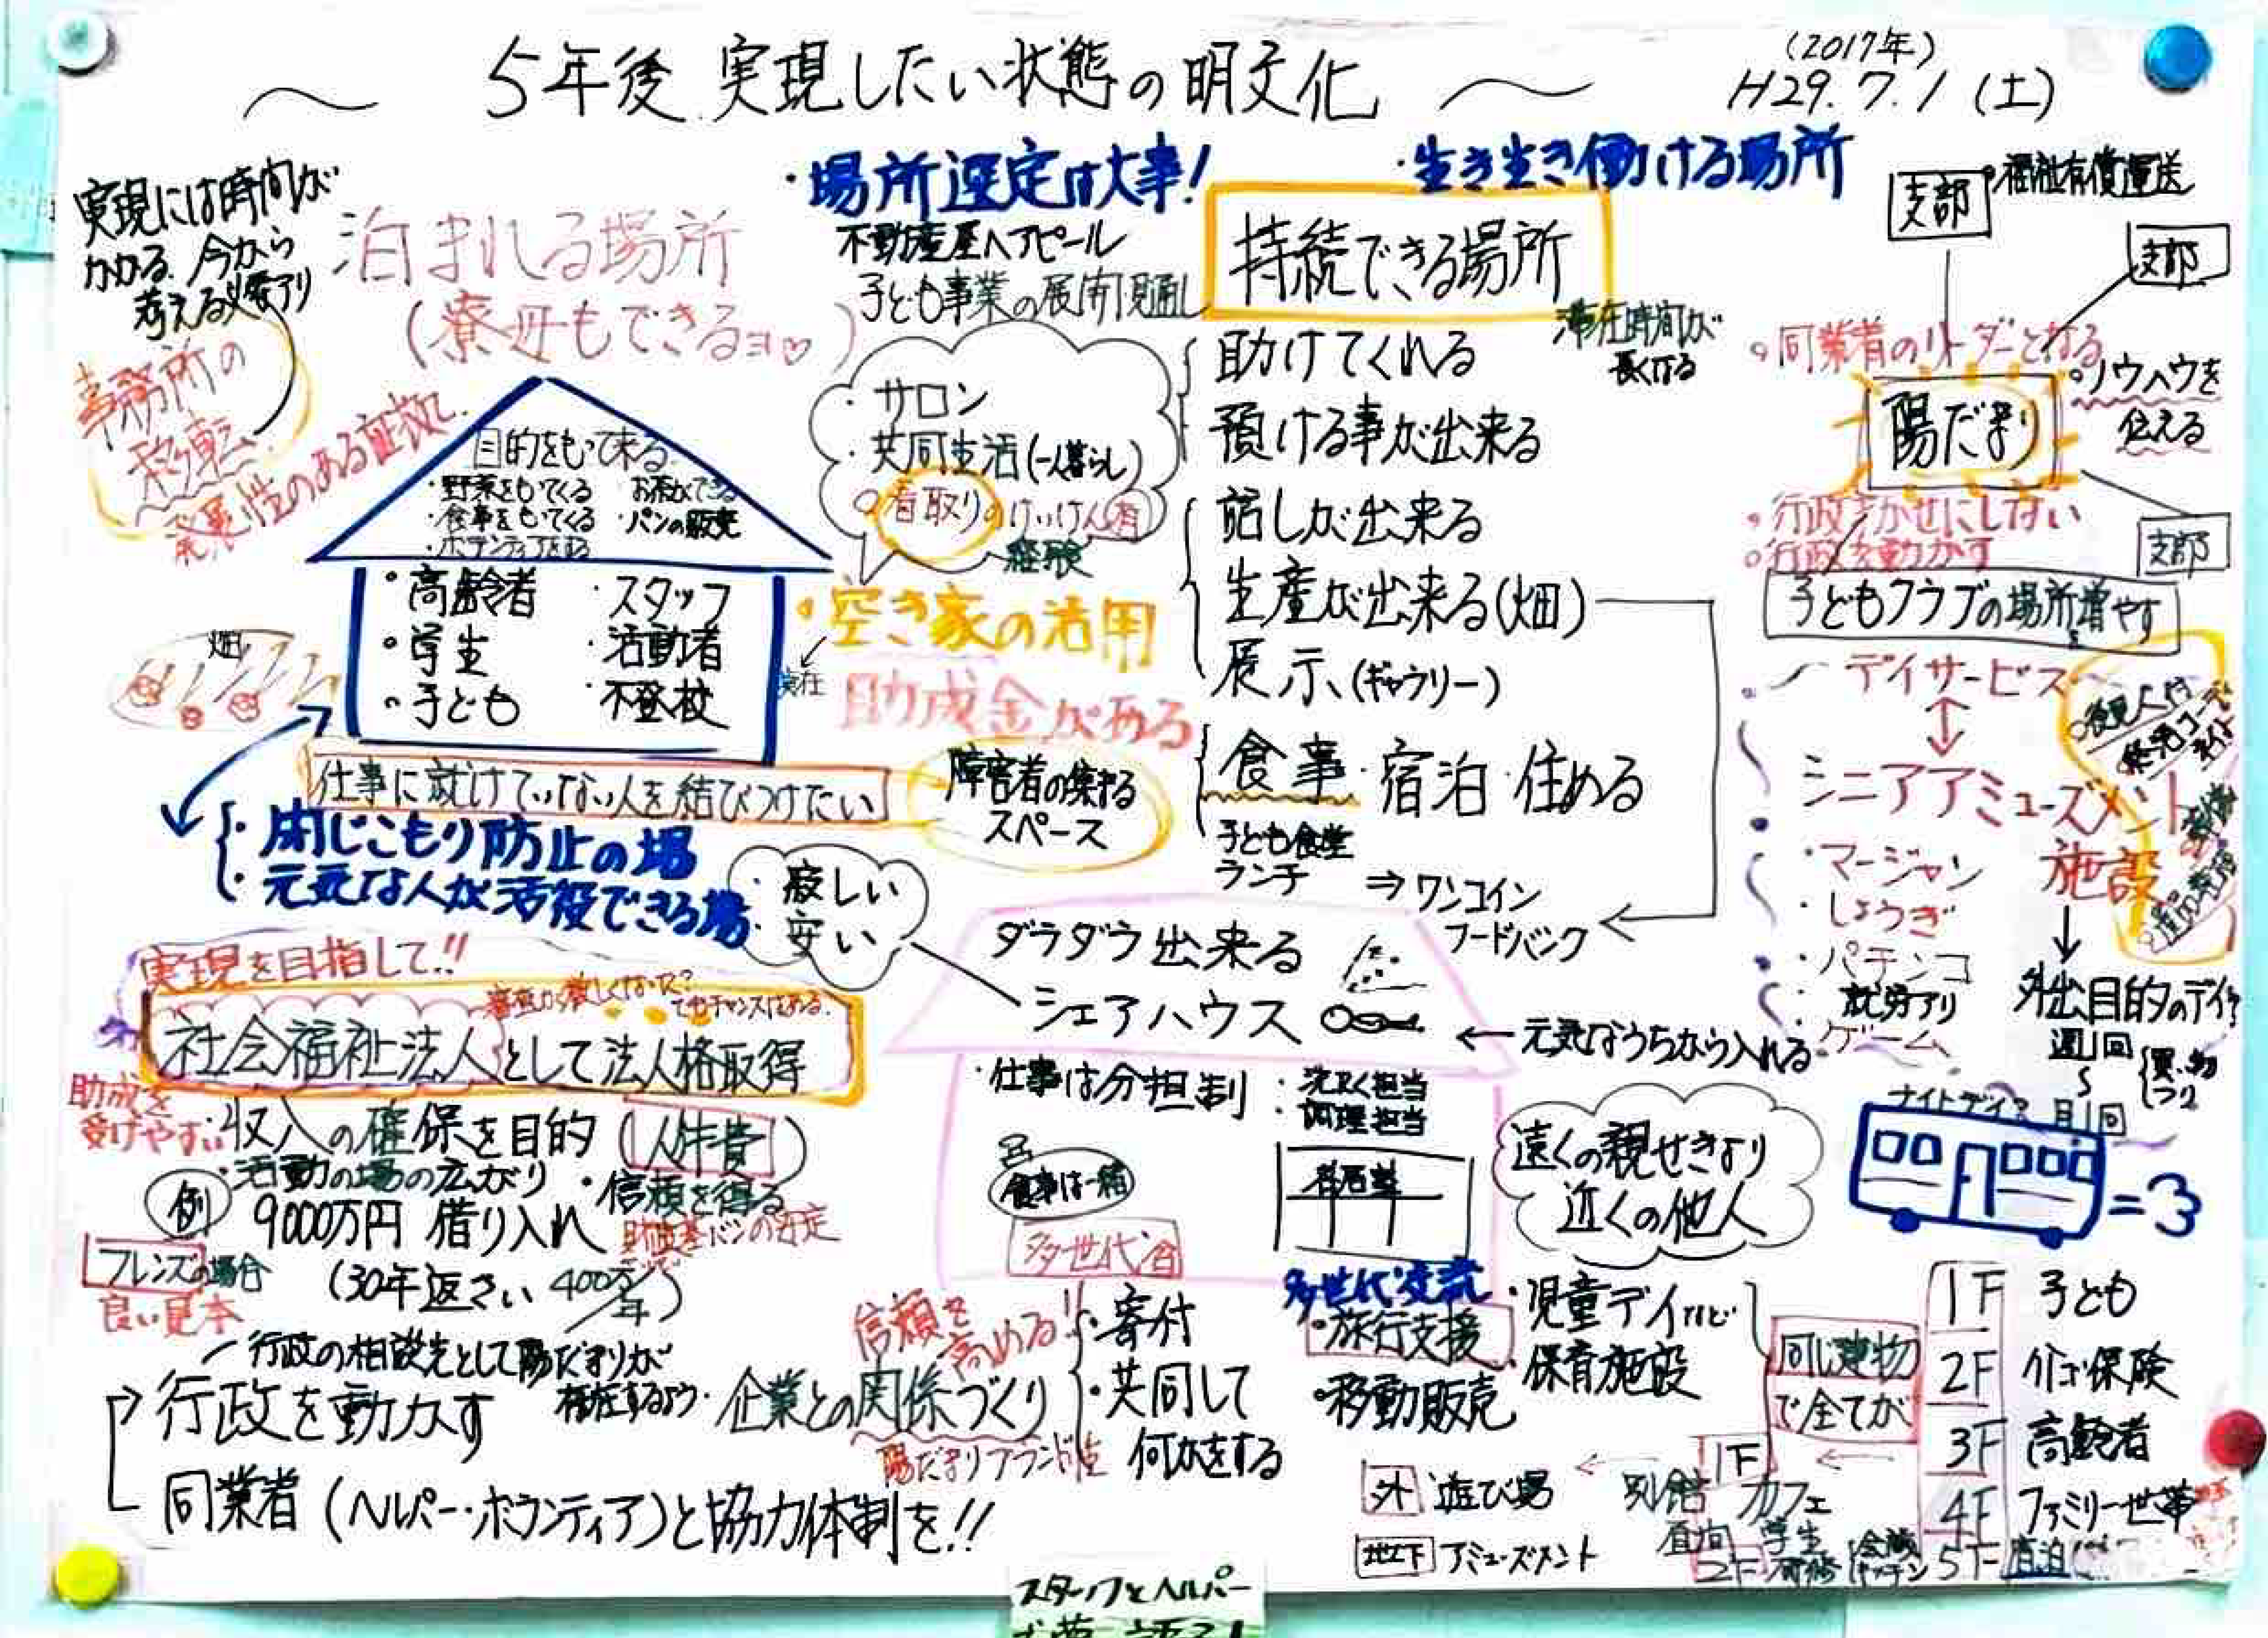 ～ 5年後 実現したい状態の明文化 ～
(2017年)
H29.7.1(土)
実現には時間が
かかる。今から
考える必要アリ
事務所の
移転
発展性のある証拠
泊まれる場所
(寮母もできるヨ♡)
・場所選定は大事!
不動産屋へアピール
子ども事業の展開見通し
・生き生き働ける場所
持続できる場所
滞在時間が
長くなる
助けてくれる
預ける事が出来る
話しが出来る
生産が出来る(畑)
展示、(ギャラリー)
食事・宿泊・住める
子ども食堂
ランチ
⇒ワンコイン
フードバンク
・サロン
・共同生活(一人暮らし)
○看取りのけいけん有
経験
・空き家の活用
現在
助成金がある
障害者の集まる
スペース
目的をもって来る
・野菜をもってくる
・お茶ができる
・食事をもってくる
・パンの販売
・ボランティアをする
・高齢者
・スタッフ
・学生
・活動者
・子ども
・不登校
畑
仕事に就けていない人を結びつけたい
・閉じこもり防止の場
・元気な人が活役できる場
・寂しい
安い
支部
・福祉有償運送
支部
。同業者のリーダーとなる
。ノウハウを
伝える
陽だまり
・行政まかせにしない
。行政を動かす
支部
子どもクラブの場所増やす
デイサービス
↕
シニアアミューズメント
施設
・マージャン
・しょうぎ
・パチンコ
就労アリ
・ゲーム
↓
外出目的のデイ?
週1回
〜
月1回
買い物
つり
ナイトデイ?
=3
ダラダラ出来る
シェアハウス
←元気なうちから入れる
・仕事は分担制
・洗たく担当
・調理担当
食事は一緒
多世代(含)
遠くの親せきより
近くの他人
実現を目指して!!
審査が厳しくなった?
でもチャンスはある。
社会福祉法人として法人格取得
助成を
受けやすい
・収入の確保を目的(人件費)
・活動の場の広がり
・信頼を得る
例
9000万円 借り入れ
財政基バンの安定
フレンズの場合
(30年返さい 400万/年)
良い見本
行政の相談先として陽だまりが
存在するよう・
行政を動かす
同業者(ヘルパー・ボランティア)と協力体制を!!
信頼を
高める!!
企業との関係づくり
陽だまりブランド性
・寄付
・共同して
何かをする
多世代交流
・旅行支援
・移動販売
・児童デイなど
・保育施設
同じ建物
で全てが
1F 子ども
2F 介ゴ保険
3F 高齢者
4F ファミリー世帯
5F 宿泊
外 遊び場
地下 アミューズメント
別館
1F
カフェ
2F
学生
スタッフとヘルパー